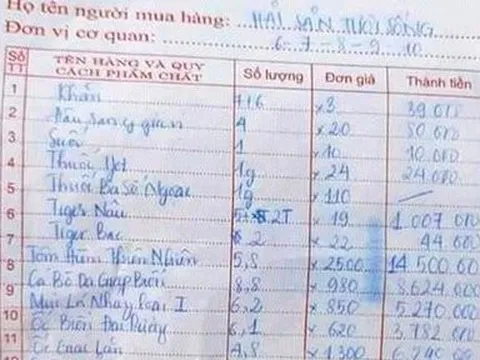 Họ tên người mua hàng: HẢI SẢN TƯƠI SỐNG
Đơn vị cơ quan: 6-7-8-9-10
Số TT TÊN HÀNG VÀ QUY CÁCH PHẨM CHẤT Số lượng Đơn giá Thành tiền
1 Khăn ×3 39.000
2 4 ×20 80.000
3 Suối 1 ×10 10.000
4 Thuốc Jet 1g ×24 24.000
5 Thuốc Ba Số Ngoại 1g ×110
6 Tiger Nâu 2T ×19 1.007.000
7 Tiger Bạc 2 ×22 44.000
8 Tôm Hùm Thiên Nhiên 5,8 ×2500 14.500.00
9 Cá Bò Da Giáp Biển 8,8 ×980 8.624.000
10 Mực Lá Nháy Loại I 6,2 ×850 5.270.000
11 Ốc Biển Đài 6,1 ×620 3.782.000
12 Ốc 4,8 ×1300